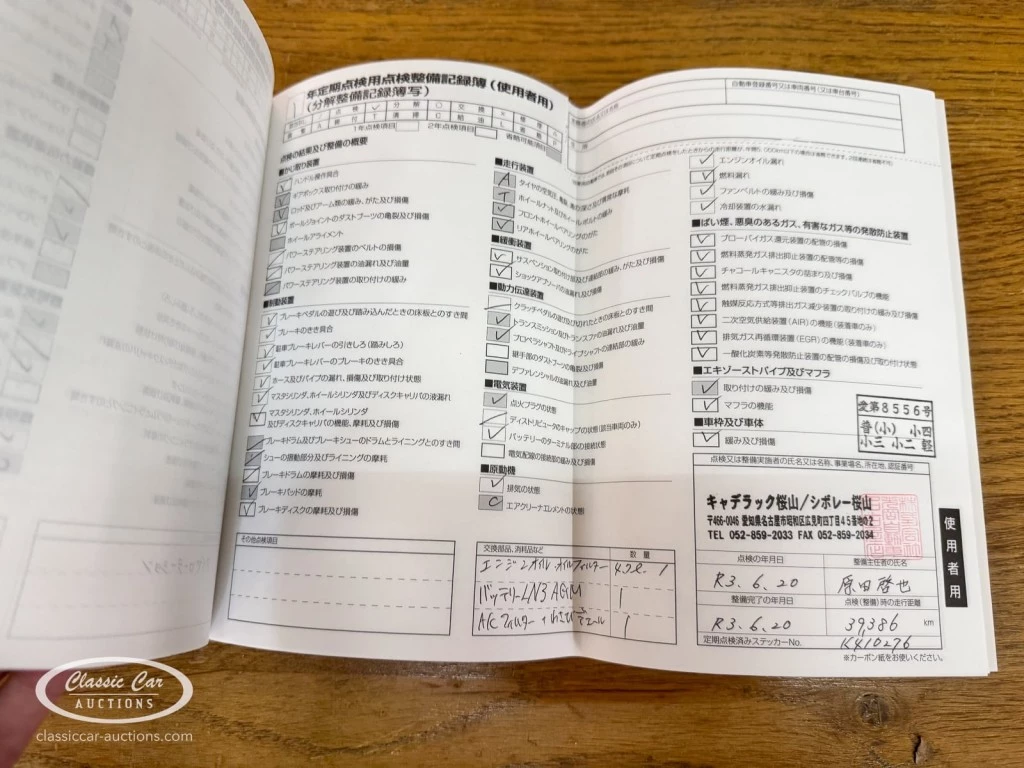 1年定期点検用点検整備記録簿（使用者用）
（分解整備記録簿写）
1年点検項目
2年点検項目
省略可能項目
点検の結果及び整備の概要
■かじ取り装置
ハンドル操作具合
ギアボックス取り付けの緩み
ロッド及びアーム類の緩み、がた及び損傷
ボールジョイントのダストブーツの亀裂及び損傷
ホイールアライメント
パワーステアリング装置のベルトの損傷
パワーステアリング装置の油漏れ及び油量
パワーステアリング装置の取り付けの緩み
■制動装置
ブレーキペダルの遊び及び踏み込んだときの床板とのすき間
ブレーキのきき具合
駐車ブレーキレバーの引きしろ（踏みしろ）
駐車ブレーキレバーのブレーキのきき具合
ホース及びパイプの漏れ、損傷及び取り付け状態
マスタシリンダ、ホイールシリンダ及びディスクキャリパの液漏れ
マスタシリンダ、ホイールシリンダ
及びディスクキャリパの機能、摩耗及び損傷
ブレーキドラム及びブレーキシューのドラムとライニングとのすき間
シューの摺動部分及びライニングの摩耗
ブレーキドラムの摩耗及び損傷
ブレーキパッドの摩耗
ブレーキディスクの摩耗及び損傷
その他点検項目
■走行装置
ホイールナット及びホイールボルトの緩み
フロントホイールベアリングのがた
リアホイールベアリングのがた
■緩衝装置
サスペンション取り付け部及び連結部の緩み、がた及び損傷
ショックアブソーバの油漏れ及び損傷
■動力伝達装置
クラッチペダルの遊び及び切れたときの床板とのすき間
トランスミッション及びトランスファの油漏れ及び油量
プロペラシャフト及びドライブシャフトの連結部の緩み
継手部のダストブーツの亀裂及び損傷
デファレンシャルの油漏れ及び油量
■電気装置
点火プラグの状態
ディストリビュータのキャップの状態（該当車両のみ）
バッテリーのターミナル部の接続状態
電気配線の接続部の緩み及び損傷
■原動機
排気の状態
C エアクリーナエレメントの状態
交換部品、消耗品など 数量
エンジンオイル、オイルフィルター
バッテリー LN3 AGM 1
A/Cフィルター
自動車登録番号又は車両番号（又は車台番号）
エンジンオイル漏れ
燃料漏れ
ファンベルトの緩み及び損傷
冷却装置の水漏れ
■ばい煙、悪臭のあるガス、有害なガス等の発散防止装置
ブローバイガス還元装置の配管の損傷
燃料蒸発ガス排出抑止装置の配管等の損傷
チャコールキャニスタの詰まり及び損傷
燃料蒸発ガス排出抑止装置のチェックバルブの機能
触媒反応方式等排出ガス減少装置の取り付けの緩み及び損傷
二次空気供給装置（AIR）の機能（装着車のみ）
排気ガス再循環装置（EGR）の機能（装着車のみ）
一酸化炭素等発散防止装置の配管の損傷及び取り付け状態
■エキゾーストパイプ及びマフラ
取り付けの緩み及び損傷
マフラの機能
■車枠及び車体
緩み及び損傷
愛第8556号
普（小） 小四
小三 小二 軽
点検又は整備実施者の氏名又は名称、事業場名、所在地、認証番号
キャデラック桜山／シボレー桜山
〒466-0046 愛知県名古屋市昭和区広見町四丁目45番地の2
TEL 052-859-2033 FAX 052-859-2034
点検の年月日 整備主任者の氏名
R3.6.20 原田啓也
整備完了の年月日 点検（整備）時の走行距離
R3.6.20 39,386 km
定期点検済みステッカーNo. K410276
※カーボン紙をお使いください。
使用者用
Classic Car
AUCTIONS
classiccar-auctions.com